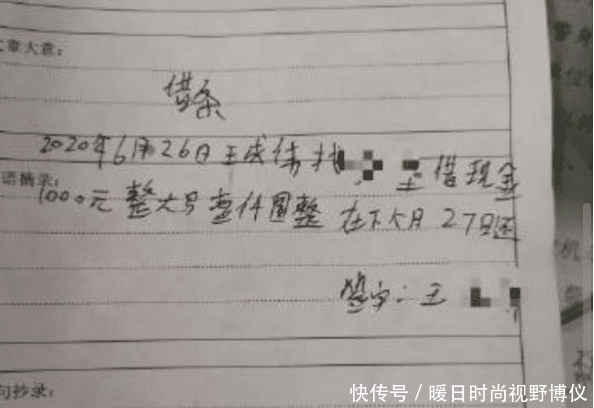 文章大意:
借条
2020年6月26日王成伟找 借现金
语摘录:
1000元整大写壹仟圆整 在下个月27日还
签字:王
句抄录:
快传号/暖日时尚视野博仪